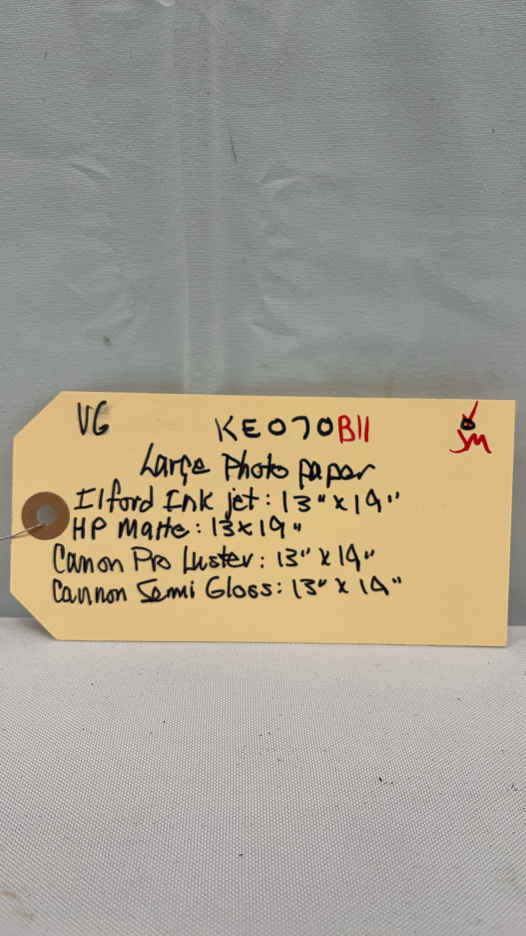 VG KE070B11 JM
Large Photo paper
Ilford Ink jet: 13" x 19"
HP Matte: 13x19"
Canon Pro Luster: 13" x 19"
Cannon Semi Gloss: 13" x 19"